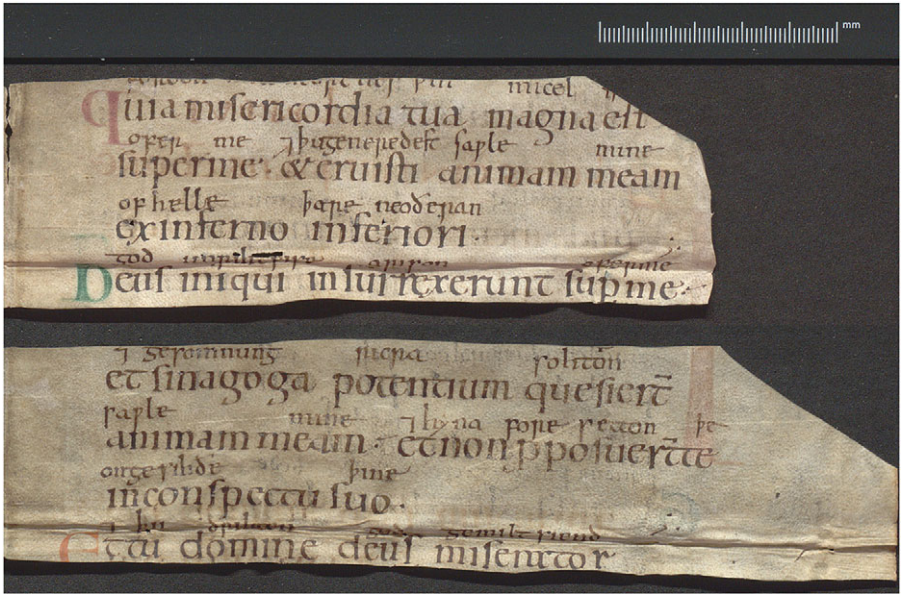 micel
Quia misericordia tua magna est
ofer me ⁊ þu generedest saƿle mine
superme· & eruisti animam meam
of helle þare neoðeran
ex inferno inferiori·
god ofer me
Deus iniqui insurrexerunt sup me·
⁊ gesomnung ricra sohton
et sinagoga potentium quesiert̄
saƿle mine ⁊ hy na fore setton þe
animam meam· et non pposuert̄ te
on gesihðe þine
in conspectu suo·
⁊ þu god gemiltsiend
Et tu domine deus miserator